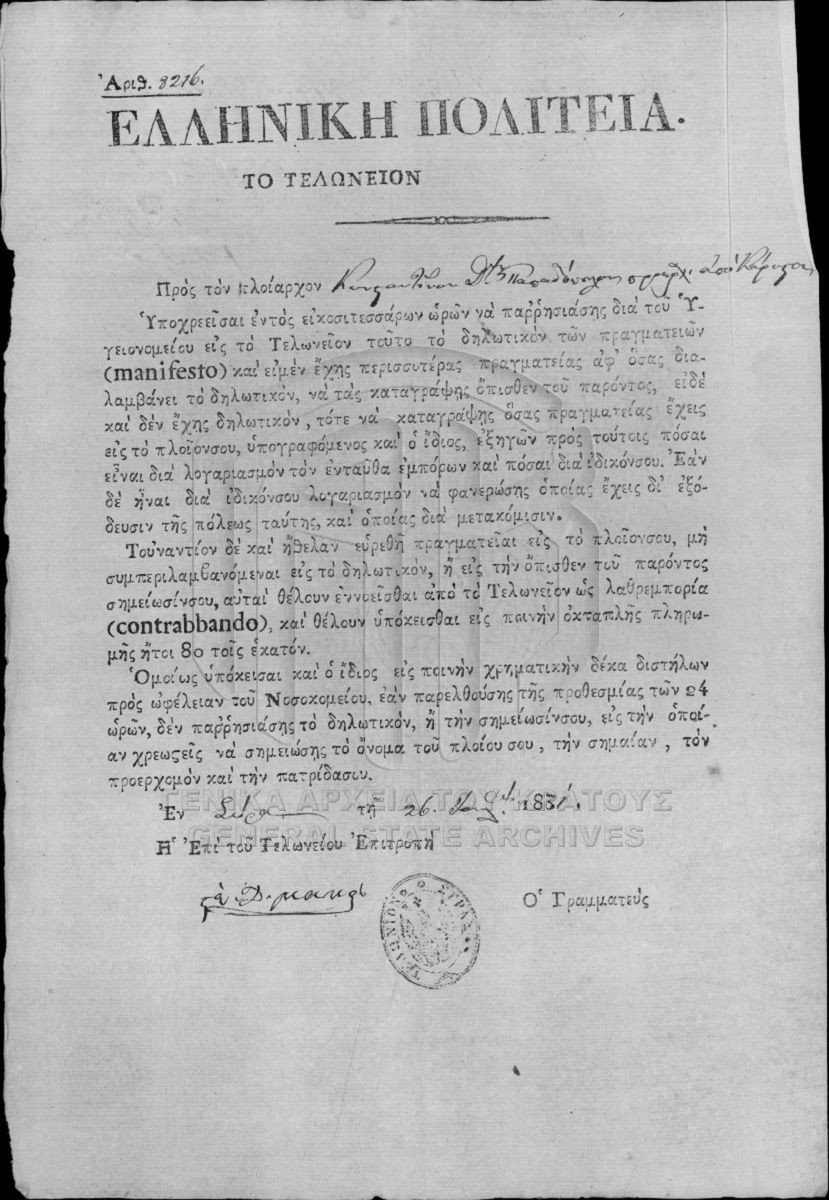 Ἀριθ. 8216.
ΕΛΛΗΝΙΚΗ ΠΟΛΙΤΕΙΑ.
ΤΟ ΤΕΛΩΝΕΙΟΝ
Πρὸς τὸν πλοίαρχον Κωνσταντῖνον Παπαδόπουλον ἀπὸ
Ὑποχρεεῖσαι ἐντὸς εἰκοσιτεσσάρων ὡρῶν νὰ παῤῥησιάσῃς διὰ τοῦ Ὑ-
γειονομείου εἰς τὸ Τελωνεῖον τοῦτο τὸ δηλωτικὸν τῶν πραγματειῶν
(manifesto) καὶ εἰμὲν ἔχῃς περισσοτέρας πραγματείας ἀφ' ὅσας δια-
λαμβάνει τὸ δηλωτικὸν, νὰ τὰς καταγράψῃς ὄπισθεν τοῦ παρόντος, εἰδὲ
καὶ δὲν ἔχῃς δηλωτικὸν, τότε νὰ καταγράψῃς ὅσας πραγματείας ἔχεις
εἰς τὸ πλοῖονσου, ὑπογραφόμενος καὶ ὁ ἴδιος, ἐξηγῶν πρὸς τούτοις πόσαι
εἶναι διὰ λογαριασμὸν τὸν ἐνταῦθα ἐμπόρων καὶ πόσαι διὰ ἰδικόνσου. Ἐὰν
δὲ ἦναι διὰ ἰδικόνσου λογαριασμὸν νὰ φανερώσῃς ὁποίας ἔχεις δι' ἐξό-
δευσιν τῆς πόλεως ταύτης, καὶ ὁποίας διὰ μετακόμισιν.
Τοὐναντίον δὲ καὶ ἤθελαν εὑρεθῆ πραγματεῖαι εἰς τὸ πλοῖονσου, μὴ
συμπεριλαμβανόμεναι εἰς τὸ δηλωτικὸν, ἢ εἰς τὴν ὄπισθεν τοῦ παρόντος
σημείωσίνσου, αὐταὶ θέλουν ἐννοεῖσθαι ἀπὸ τὸ Τελωνεῖον ὡς λαθρεμπορία
(contrabbando), καὶ θέλουν ὑπόκεισθαι εἰς ποινὴν ὀκταπλῆς πληρω-
μῆς ἤτοι 80 τοῖς ἑκατόν.
Ὁμοίως ὑπόκεισαι καὶ ὁ ἴδιος εἰς ποινὴν χρηματικὴν δέκα διστήλων
πρὸς ὠφέλειαν τοῦ Νοσοκομείου, ἐὰν παρελθούσης τῆς προθεσμίας τῶν 24
ὡρῶν, δὲν παῤῥησιάσῃς τὸ δηλωτικὸν, ἢ τὴν σημείωσίνσου, εἰς τὴν ὁποί-
αν χρεωστεῖς νὰ σημειώσῃς τὸ ὄνομα τοῦ πλοίου σου, τὴν σημαίαν, τὸν
προερχομὸν καὶ τὴν πατρίδασου.
Ἐν Σύρα τῇ 26. 1831.
Ἡ Ἐπὶ τοῦ Τελωνείου Ἐπιτροπὴ
Ὁ Γραμματεὺς
ΤΕΛΩΝΙΟΝ ΣΥΡΑΣ
ΓΕΝΙΚΑ ΑΡΧΕΙΑ ΤΟΥ ΚΡΑΤΟΥΣ
GENERAL STATE ARCHIVES